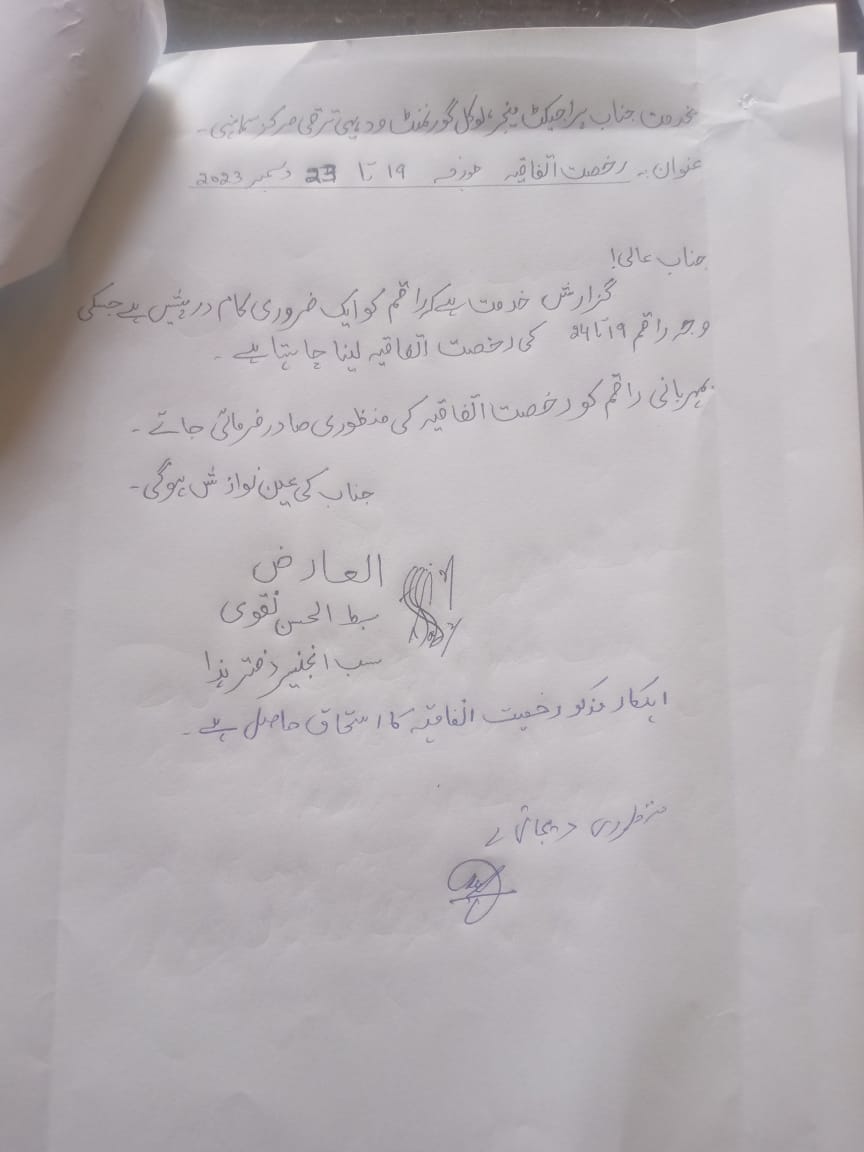 بخدمت جناب پراجیکٹ مینجر، لوکل گورنمنٹ و دیہی ترقی مرکز سماہنی۔
عنوان :۔ رخصت اتفاقیہ مورخہ 19 تا 23 دسمبر 2023
جناب عالی!
گزارش خدمت ہےکہ راقم کو ایک ضروری کام درپیش ہے جسکی
وجہ راقم 19 تا 24 کی رخصت اتفاقیہ لینا چاہتا ہے۔
بمہربانی راقم کو رخصت اتفاقیہ کی منظوری صادر فرمائی جائے۔
جناب کی عین نوازش ہوگی۔
العارض
سبط الحسن نقوی
سب انجنیر دفتر ہذا
اہلکار مذکور رخصت اتفاقیہ کا استحقاق حاصل ہے۔
منظوری دیجاتی ہے